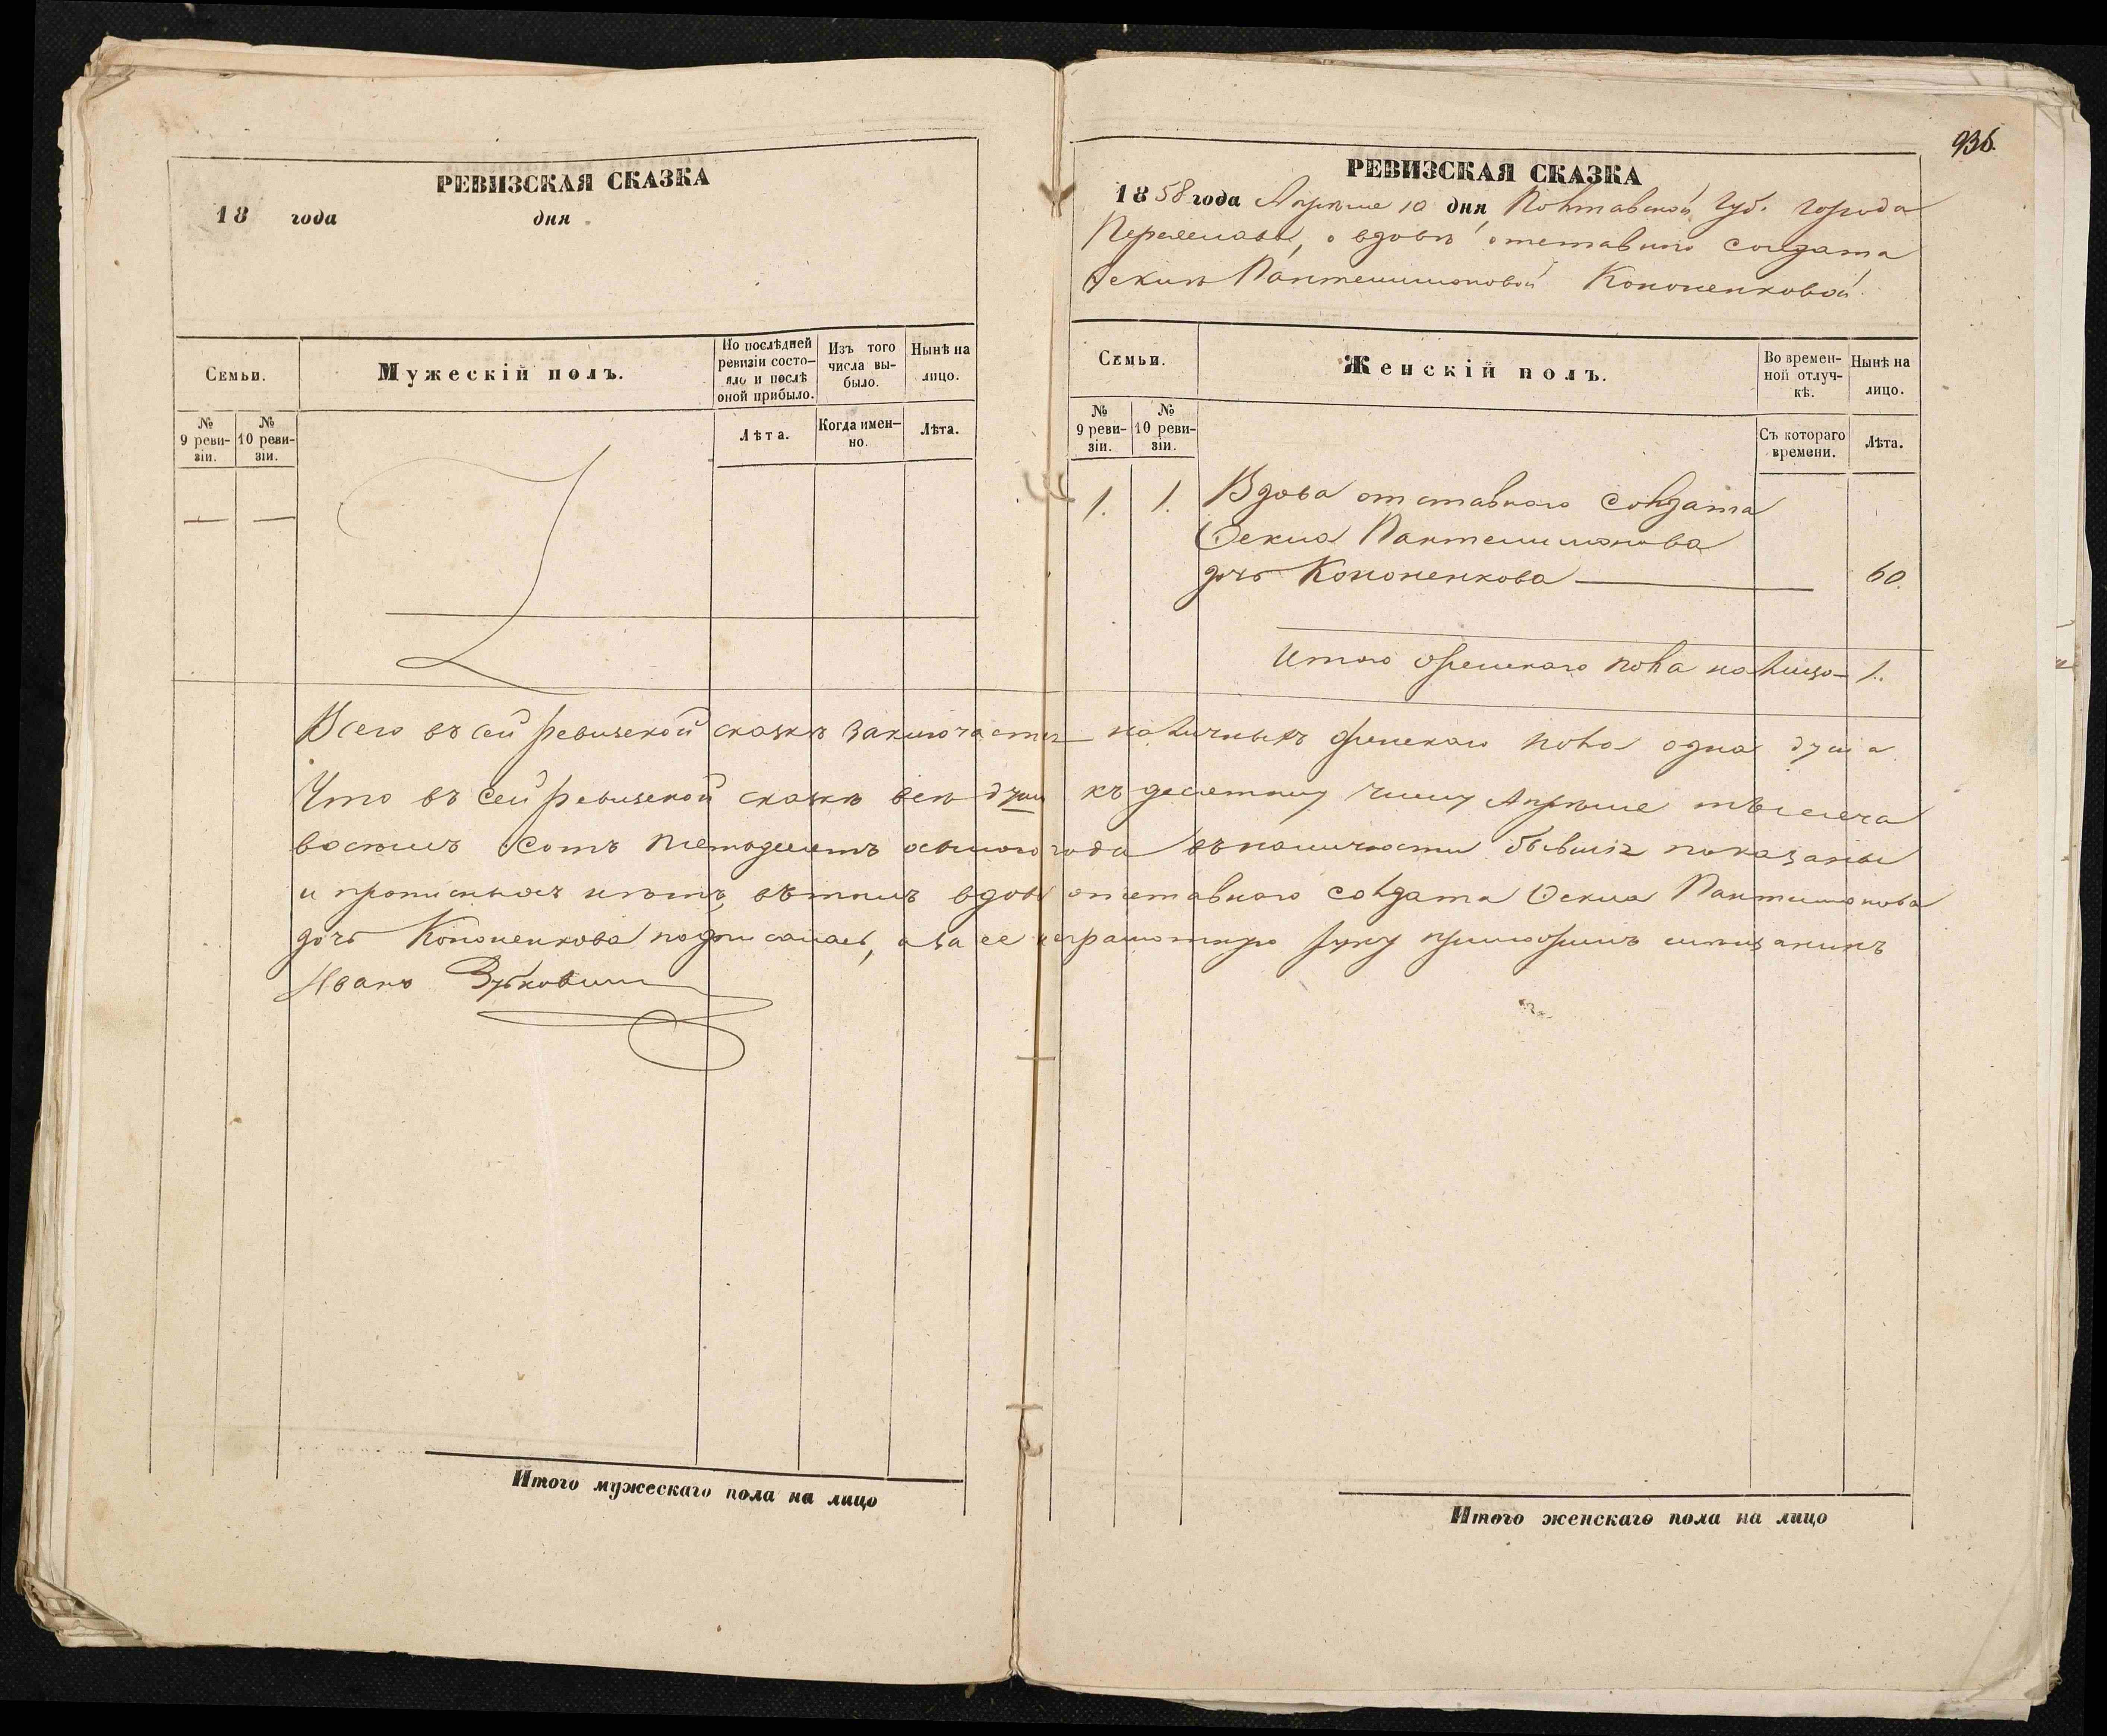 936.
РЕВИЗСКАЯ СКАЗКА
18 года дня
Семьи.
Мужескій полъ.
По послѣдней ревизіи состояло и послѣ оной прибыло.
Изъ того числа выбыло.
Нынѣ на лицо.
№ 9 ревизіи.
№ 10 ревизіи.
Лѣта.
Когда именно.
Лѣта.
РЕВИЗСКАЯ СКАЗКА
1858 года Апрѣля 10 дня Полтавской Губ. города
Переяслава, о вдовѣ отставнаго солдата
Пантелимоновой Кононенковой.
Семьи.
Женскій полъ.
Во временной отлучкѣ.
Нынѣ на лицо.
№ 9 ревизіи.
№ 10 ревизіи.
Съ котораго времени.
Лѣта.
1. 1. Вдова отставного солдата
Пантелимонова
дочь Кононенкова — 60.
Итого женскаго пола на лицо — 1.
Всего въ сей ревизской сказкѣ заключается наличныхъ женскаго пола одна душа.
Что въ сей ревизской сказкѣ всѣ души къ десятому числу Апрѣля тысяча
восемь сотъ пятдесятъ осьмого года въ наличности бывшіе показаны
и прописныхъ нѣтъ, вътомъ вдова отставнаго солдата Пантелимонова
дочь Кононенкова подписалась, а за ее неграмотную руку приложилъ мѣщанинъ
Иванъ
Итого мужескаго пола на лицо
Итого женскаго пола на лицо